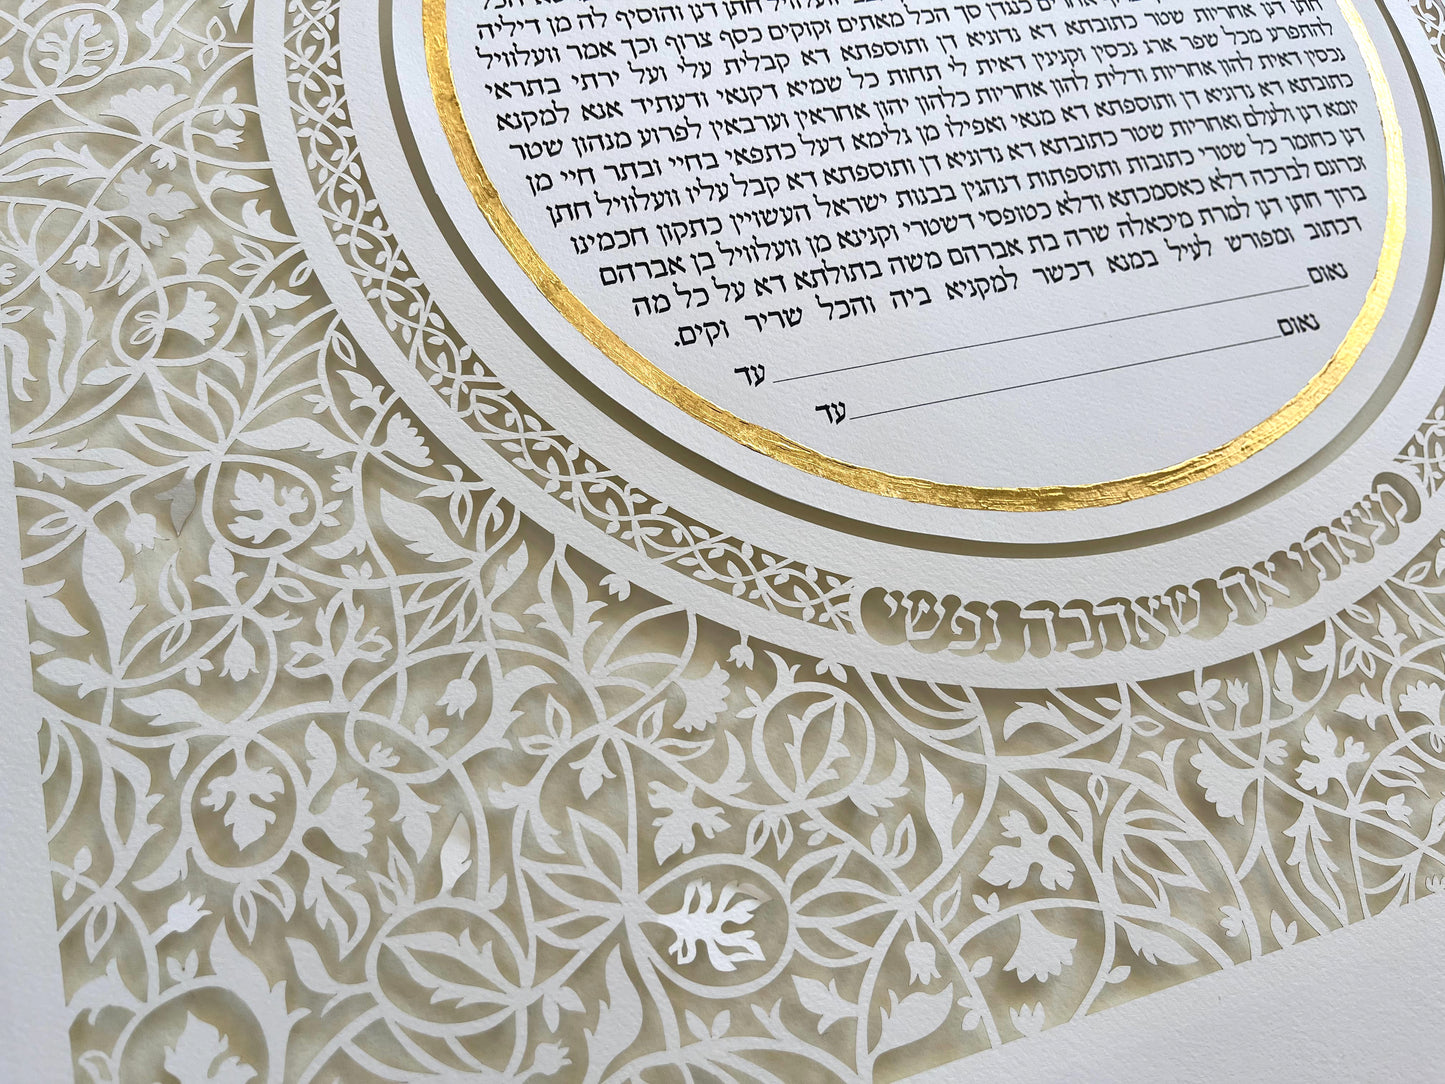 חתן דנן והוסיף לה מן דיליה
חתן דנן אחריות שטר כתובתא דא נדוניא דן ותוספתא דא קבלית עלי ועל ירתי בתראי
להתפרע מכל שפר ארג נכסין וקנינין דאית לי תחות כל שמיא דקנאי ודעתיד אנא למקנא
נכסין דאית להון אחריות ודלית להון אחריות כלהון יהון אחראין וערבאין לפרוע מנהון שטר
כתובתא דא נדוניא דן ותוספתא דא מנאי ואפילו מן גלימא דעל כתפאי בחיי ובתר חיי מן
יומא דנן ולעלם ואחריות שטר כתובתא דא נדוניא דן ותוספתא דא קבל עליו וועלוויל חתן
דנן כחומר כל שטרי כתובות ותוספתות דנהגין בבנות ישראל העשויין כתקון חכמינו
זכרונם לברכה דלא כאסמכתא ודלא כטופסי דשטרי וקנינא מן וועלוויל בן אברהם
ברוך חתן דנן למרת מיכאלה שרה בת אברהם משה בתולתא דא על כל מה
דכתוב ומפורש לעיל במנא דכשר למקניא ביה והכל שריר וקים.
נאום עד
נאום עד
מצאתי את שאהבה נפשי